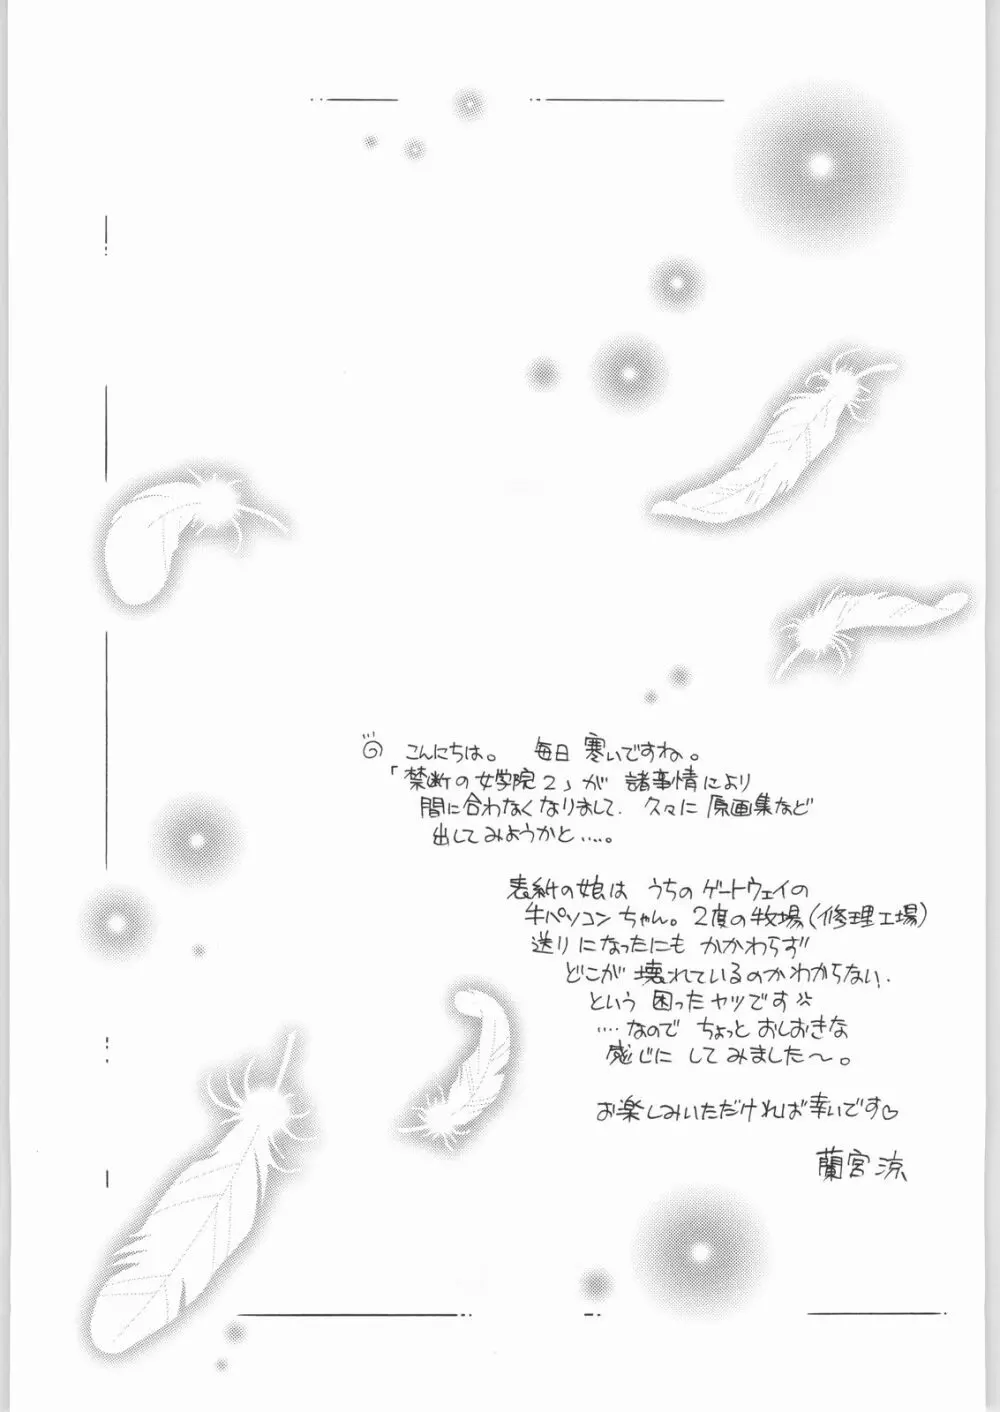 こんにちは。 毎日 寒いですね。
「禁断の女学院2」が 諸事情により
間に合わなくなりまして. 久々に 原画集など
出してみようかと‥‥。
表紙の娘は うちのゲートウェイの
牛パソコンちゃん。2度の牧場(修理工場)
送りになったにも かかわらず
どこが 壊れているのかわからない.
という 困ったヤツです
‥‥なので ちょっと おしおきな
感じに してみました〜。
お楽しみいただければ幸いです♡
蘭宮 涼